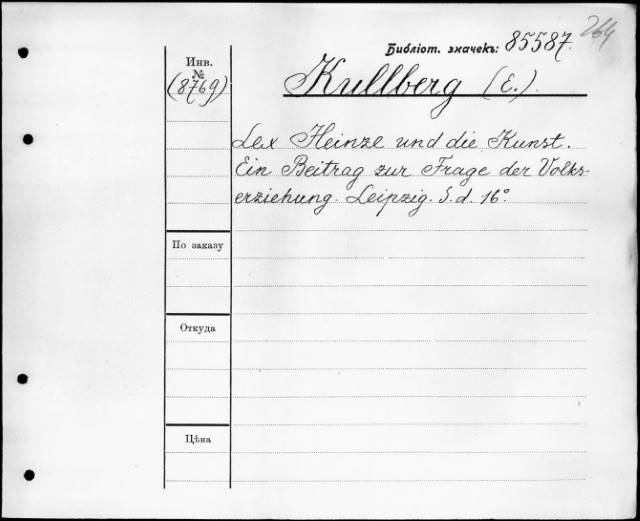 264
Библіот. значекъ: 85587.
Инв.
№
(8769)
Kullberg (E.).
Lex Heinze und die Kunst.
Ein Beitrag zur Frage der Volks-
erziehung. Leipzig. S. d. 16°.
По заказу
Откуда
Цѣна